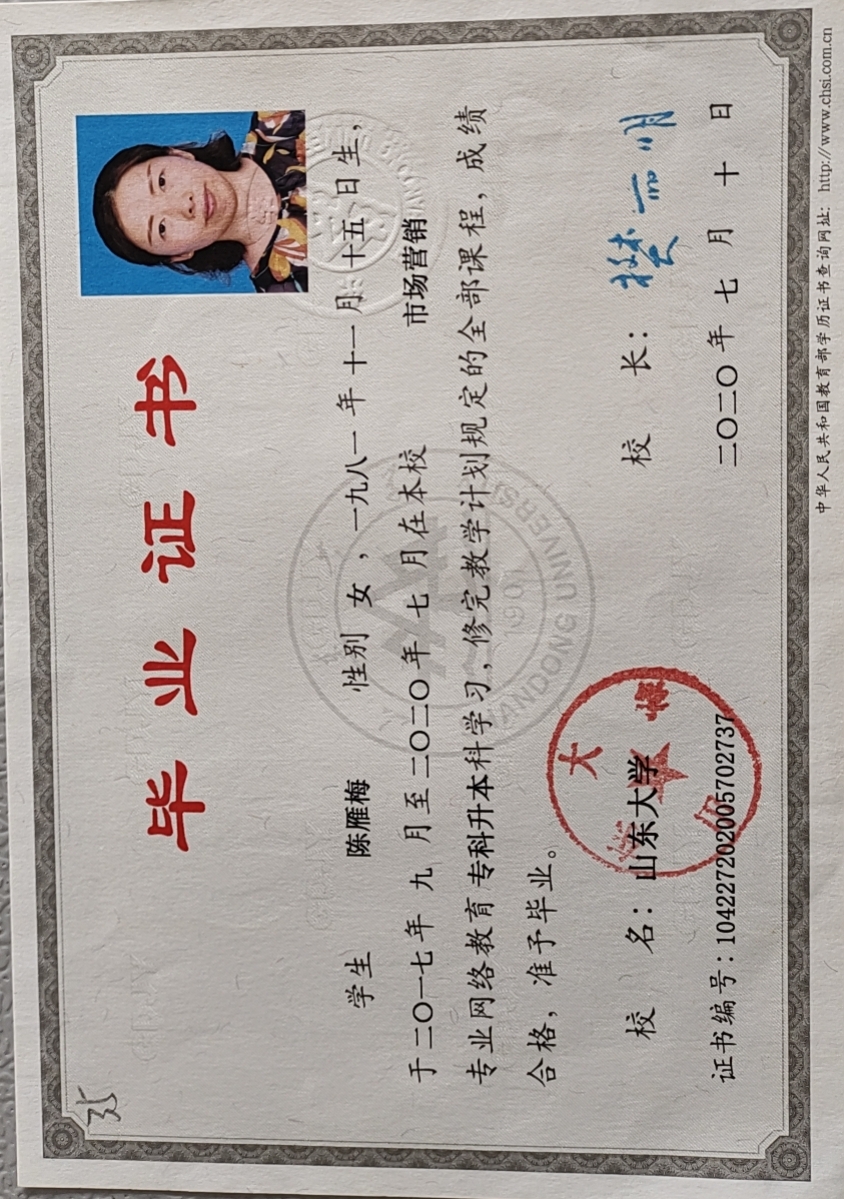 毕业证书
学生 陈雁梅 性别 女，一九八一年十一月十五日生，
于二〇一七年九月至二〇二〇年七月在本校 市场营销
专业网络教育专科升本科学习，修完教学计划规定的全部课程，成绩
合格，准予毕业。
校名：山东大学
校长：樊丽明
证书编号：104227202005702737
二〇二〇年七月十日
中华人民共和国教育部学历证书查询网址：http://www.chsi.com.cn
35
SHANDONG UNIVERSITY
1901